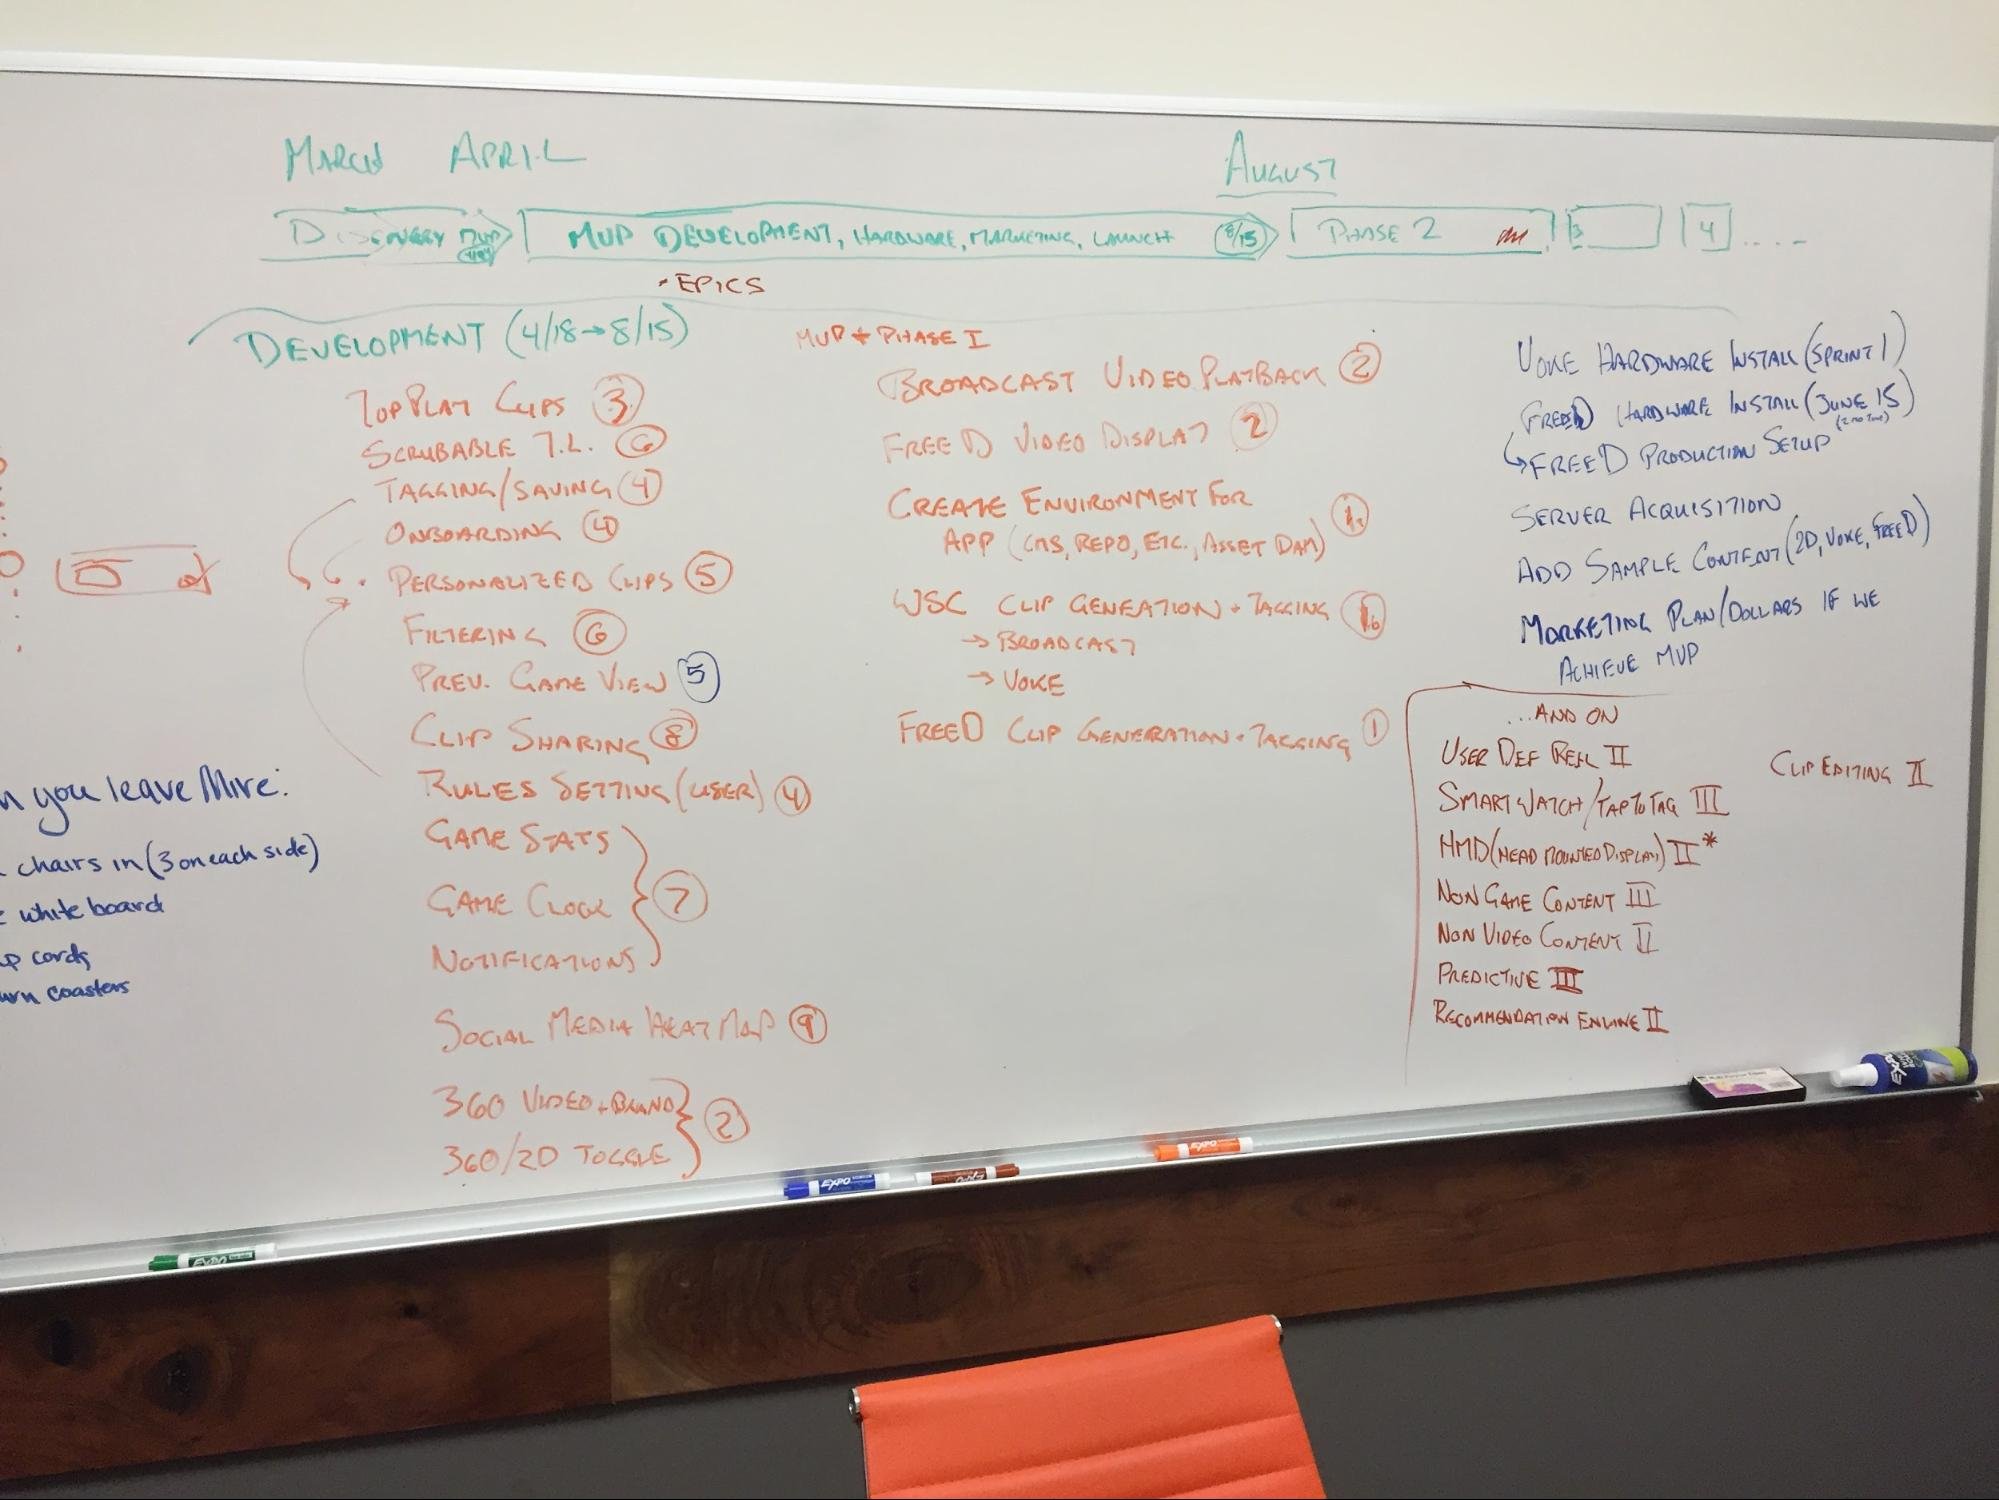 MARCH APRIL
AUGUST
DISCOVERY MVP
MVP DEVELOPMENT, HARDWARE, MARKETING, LAUNCH 8/15
PHASE 2
3
4 .....
· EPICS
DEVELOPMENT (4/18→8/15)
MVP + PHASE I
TOP PLAY CLIPS 3
SCRUBABLE T.L. 6
TAGGING/SAVING 4
ONBOARDING 4
PERSONALIZED CLIPS 5
FILTERING 6
PREV. GAME VIEW 5
CLIP SHARING 8
RULES SETTING (USER) 4
GAME STATS
GAME CLOCK
NOTIFICATIONS
7
SOCIAL MEDIA HEAT MAP 9
360 VIDEO + BRAND
360/2D TOGGLE
2
BROADCAST VIDEO PLAYBACK 2
FREED VIDEO DISPLAY 2
CREATE ENVIRONMENT FOR
APP (CMS, REPO, ETC., ASSET DAM) 1
WSC CLIP GENEATION + TAGGING 1
→ BROADCAST
→ VOKE
FREED CLIP GENERATION + TAGGING 1
VOKE HARDWARE INSTALL (SPRINT 1)
FREED HARDWARE INSTALL (JUNE 15)
FREED PRODUCTION SETUP
SERVER ACQUISITION
ADD SAMPLE CONTENT (2D, VOKE, FREED)
MARKETING PLAN/DOLLARS IF WE
ACHIEVE MVP
...AND ON
USER DEF REEL II
SMARTWATCH/TAP TO TAG III
HMD (HEAD MOUNTED DISPLAY) II*
NON GAME CONTENT III
NON VIDEO CONTENT II
PREDICTIVE III
RECOMMENDATION ENGINE II
CLIP EDITING II
n you leave Mire:
chairs in (3 on each side)
white board
up cords
urn coasters
EXPO
EXPO
EXPO
EXPO
EXPO